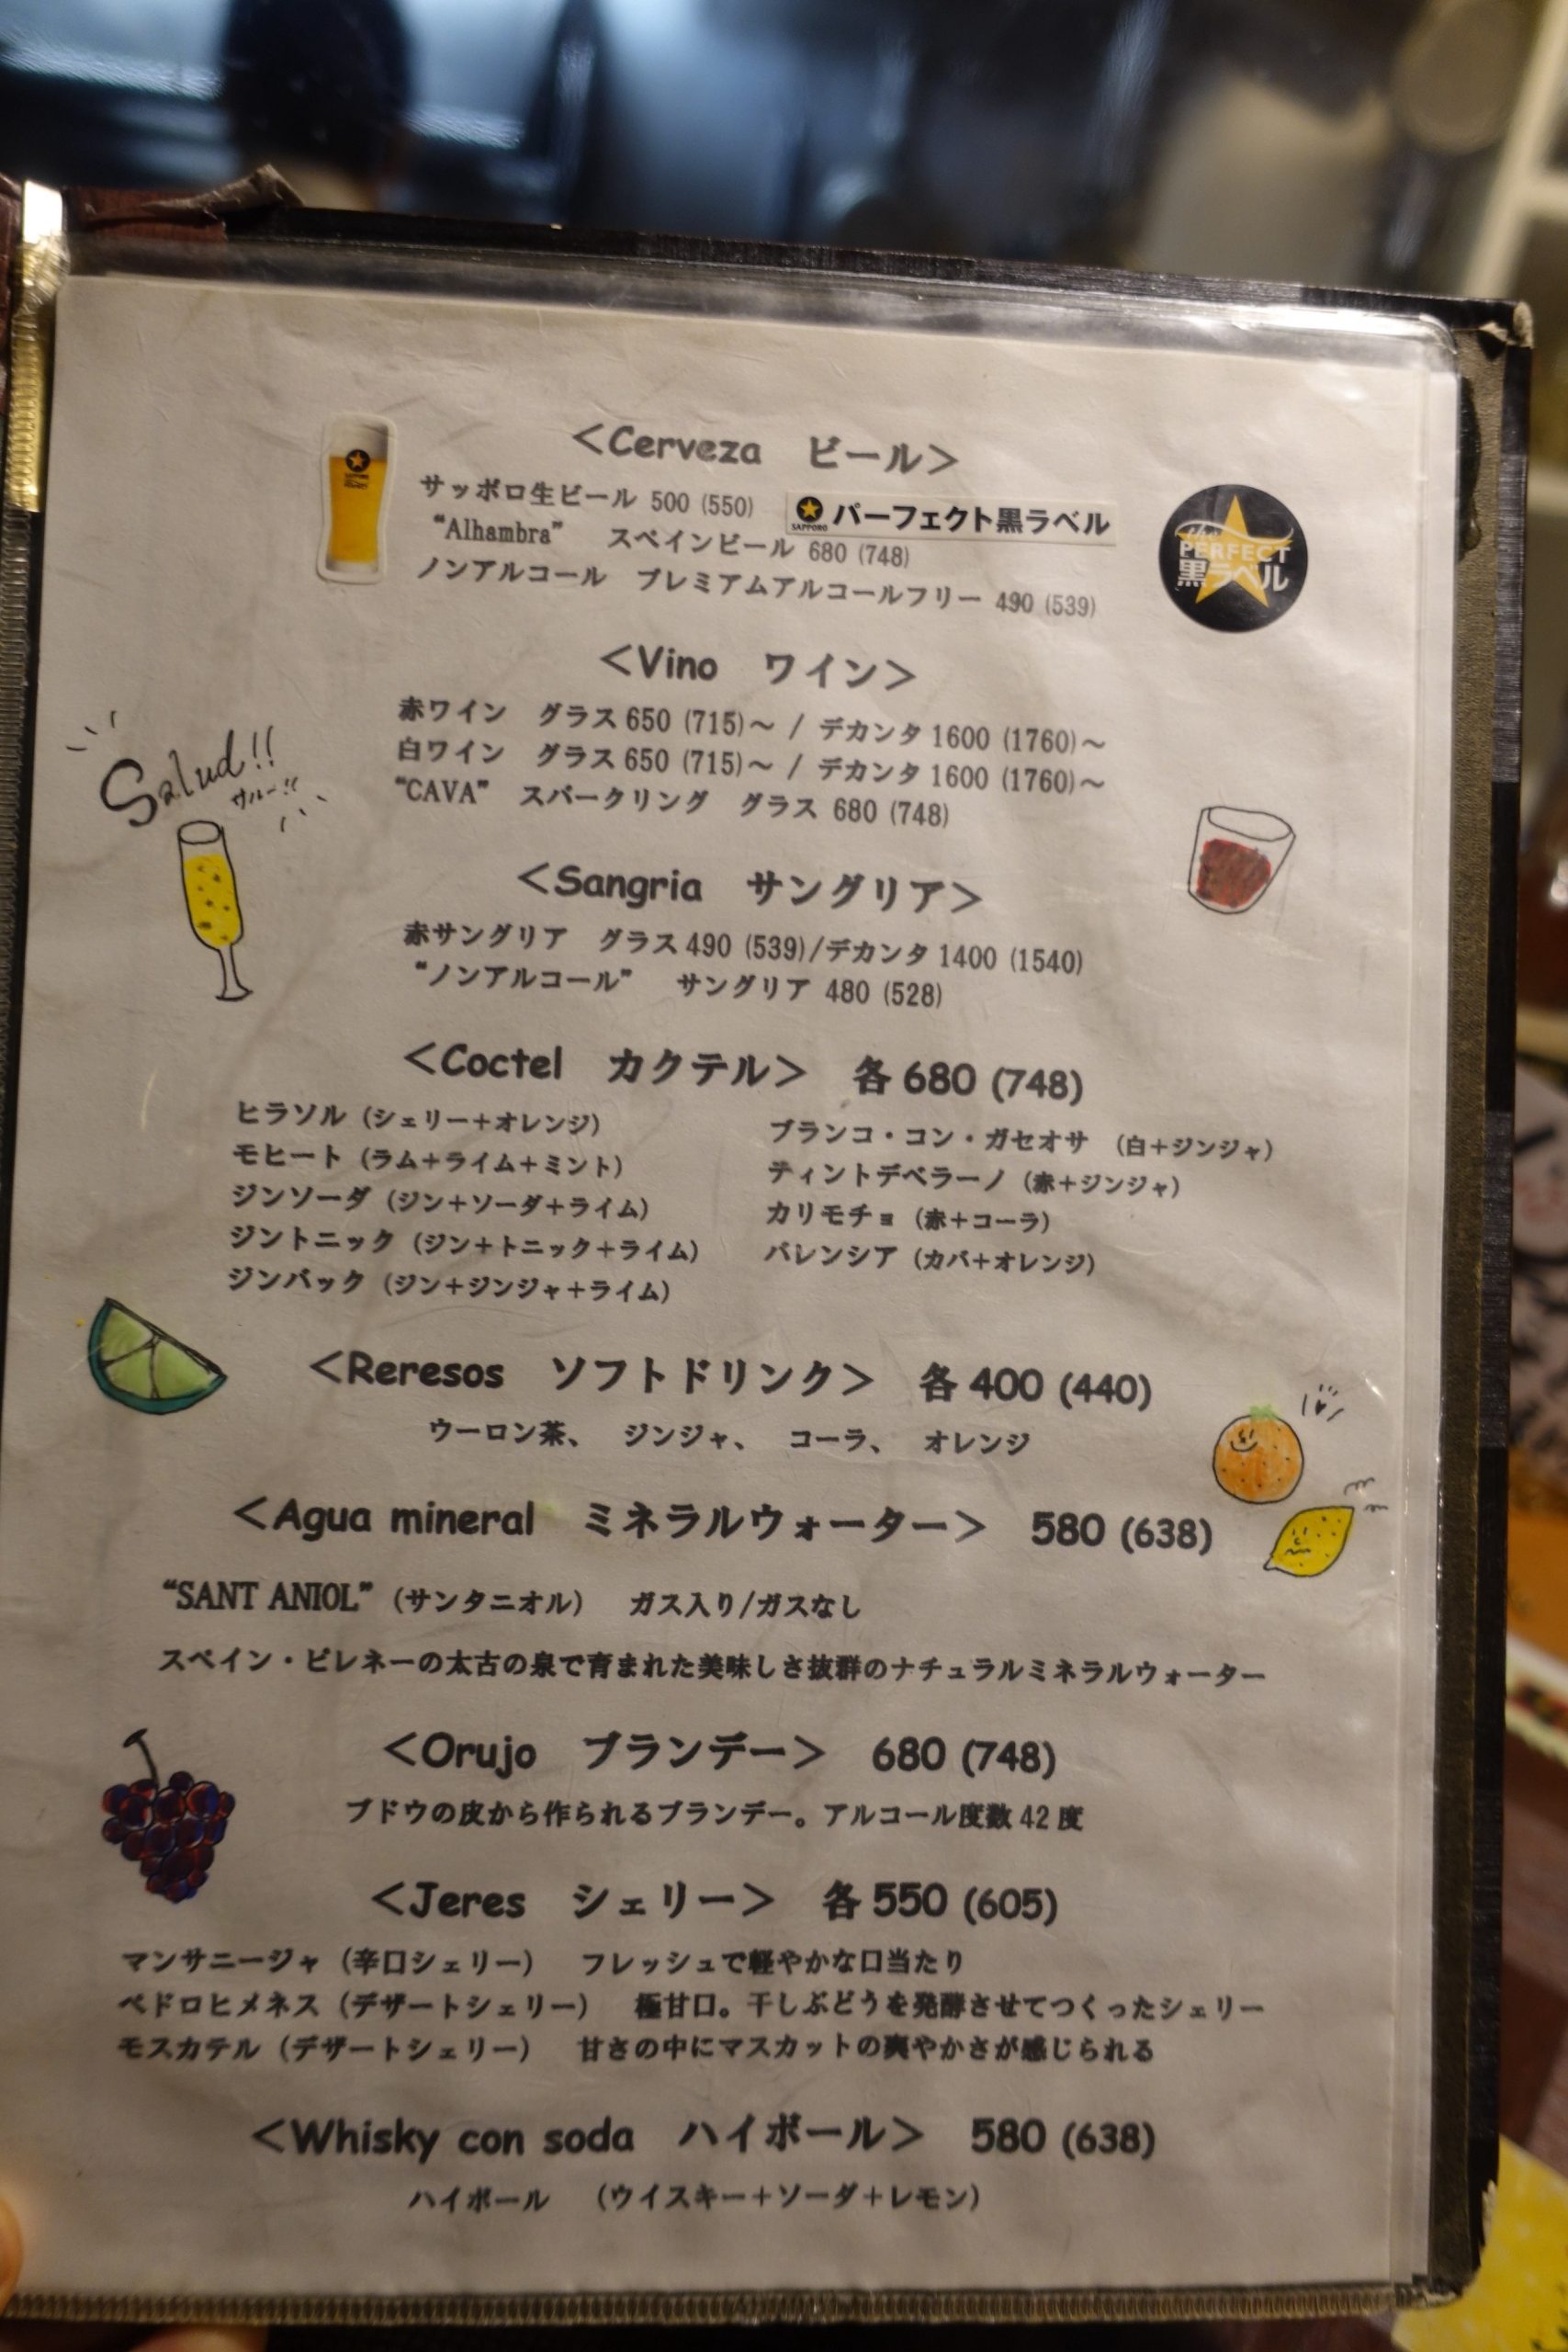 <Cerveza ビール>
サッポロ生ビール 500 (550)
SAPPORO パーフェクト黒ラベル
THE PERFECT 黒ラベル
“Alhambra” スペインビール 680 (748)
ノンアルコール プレミアムアルコールフリー 490 (539)
<Vino ワイン>
赤ワイン グラス 650 (715)～ / デカンタ 1600 (1760)～
白ワイン グラス 650 (715)～ / デカンタ 1600 (1760)～
“CAVA” スパークリング グラス 680 (748)
Salud!!
サルー!!
<Sangria サングリア>
赤サングリア グラス 490 (539)/デカンタ 1400 (1540)
“ノンアルコール” サングリア 480 (528)
<Coctel カクテル> 各 680 (748)
ヒラソル（シェリー＋オレンジ）
モヒート（ラム＋ライム＋ミント）
ジンソーダ（ジン＋ソーダ＋ライム）
ジントニック（ジン＋トニック＋ライム）
ジンバック（ジン＋ジンジャ＋ライム）
ブランコ・コン・ガセオサ （白＋ジンジャ）
ティントデベラーノ（赤＋ジンジャ）
カリモチョ（赤＋コーラ）
バレンシア（カバ＋オレンジ）
<Reresos ソフトドリンク> 各 400 (440)
ウーロン茶、 ジンジャ、 コーラ、 オレンジ
<Agua mineral ミネラルウォーター> 580 (638)
“SANT ANIOL”（サンタニオル） ガス入り/ガスなし
スペイン・ピレネーの太古の泉で育まれた美味しさ抜群のナチュラルミネラルウォーター
<Orujo ブランデー> 680 (748)
ブドウの皮から作られるブランデー。アルコール度数 42 度
<Jeres シェリー> 各 550 (605)
マンサニージャ（辛口シェリー） フレッシュで軽やかな口当たり
ペドロヒメネス（デザートシェリー） 極甘口。干しぶどうを発酵させてつくったシェリー
モスカテル（デザートシェリー） 甘さの中にマスカットの爽やかさが感じられる
<Whisky con soda ハイボール> 580 (638)
ハイボール （ウイスキー＋ソーダ＋レモン）